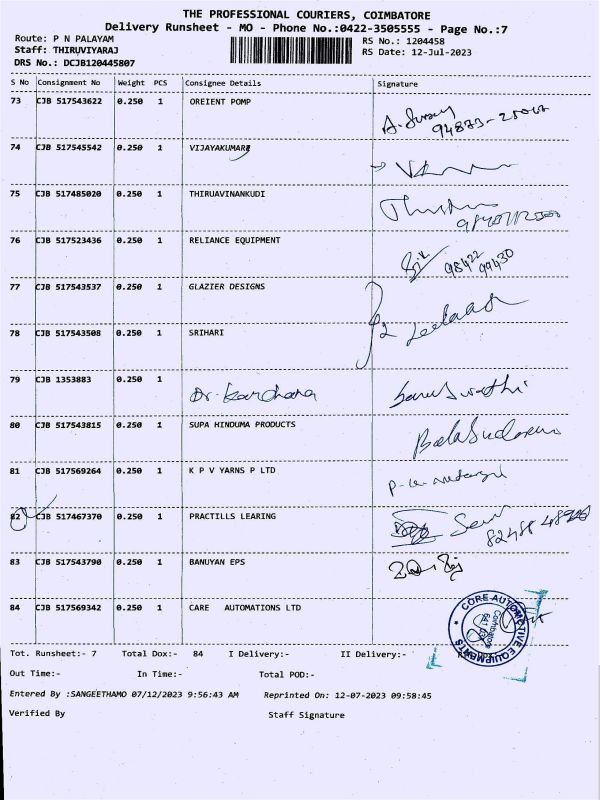 THE PROFESSIONAL COURIERS, COIMBATORE
Delivery Runsheet - MO - Phone No.:0422-3505555 - Page No.:7
Route: P N PALAYAM RS No.: 1204458
Staff: THIRUVIYARAJ RS Date: 12-Jul-2023
DRS No.: DCJB120445807
S No Consignment No Weight PCS Consignee Details Signature
73 CJB 517543622 0.250 1 OREIENT POMP
74 CJB 517545542 0.250 1 VIJAYAKUMAR
75 CJB 517485020 0.250 1 THIRUAVINANKUDI
76 CJB 517523436 0.250 1 RELIANCE EQUIPMENT 98422 99430
77 CJB 517543537 0.250 1 GLAZIER DESIGNS
78 CJB 517543508 0.250 1 SRIHARI
79 CJB 1353883 0.250 1 Dr.
80 CJB 517543815 0.250 1 SUPA HINDUMA PRODUCTS
81 CJB 517569264 0.250 1 K P V YARNS P LTD
82 CJB 517467370 0.250 1 PRACTILLS LEARING
83 CJB 517543790 0.250 1 BANUYAN EPS
84 CJB 517569342 0.250 1 CARE AUTOMATIONS LTD
CORE AUTOMOTIVE EQUIPMENTS
Tot. Runsheet:- 7 Total Dox:- 84 I Delivery:- II Delivery:-
Out Time:- In Time:- Total POD:-
Entered By :SANGEETHAMO 07/12/2023 9:56:43 AM Reprinted On: 12-07-2023 09:58:45
Verified By Staff Signature